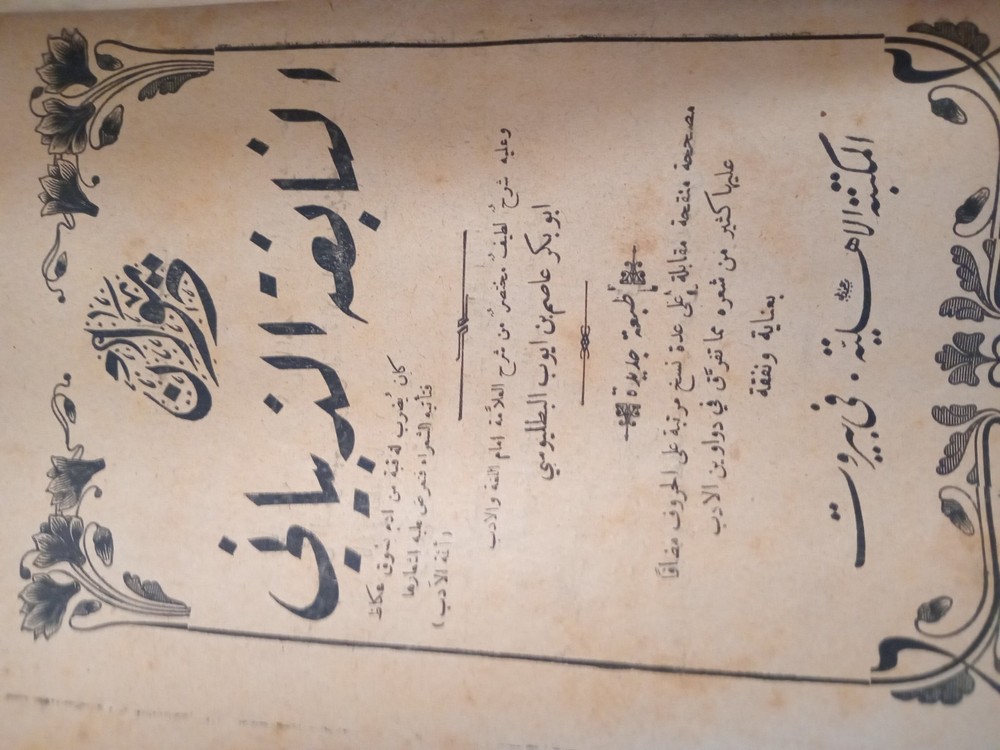 ديوان
النابغة الذبياني
كان يُضرب له قبة من ادم بسوق عكاظ
فتأتيه الشعراء فتعرض عليه اشعارها
(أئمة الأدب)
وعليه شرحٌ لطيفٌ مختصرٌ من شرح العلَّامة امام اللغة والادب
ابو بكر عاصم بن ايوب البطليوسي
طبعة جديدة
مصححة منقحة مقابلة على عدة نسخ مرتبة على الحروف مضافًا
عليها كثير من شعره مما تفرَّق في دواوين الادب
بعناية ونفقة
المكتبة الاهلية. في بيروت